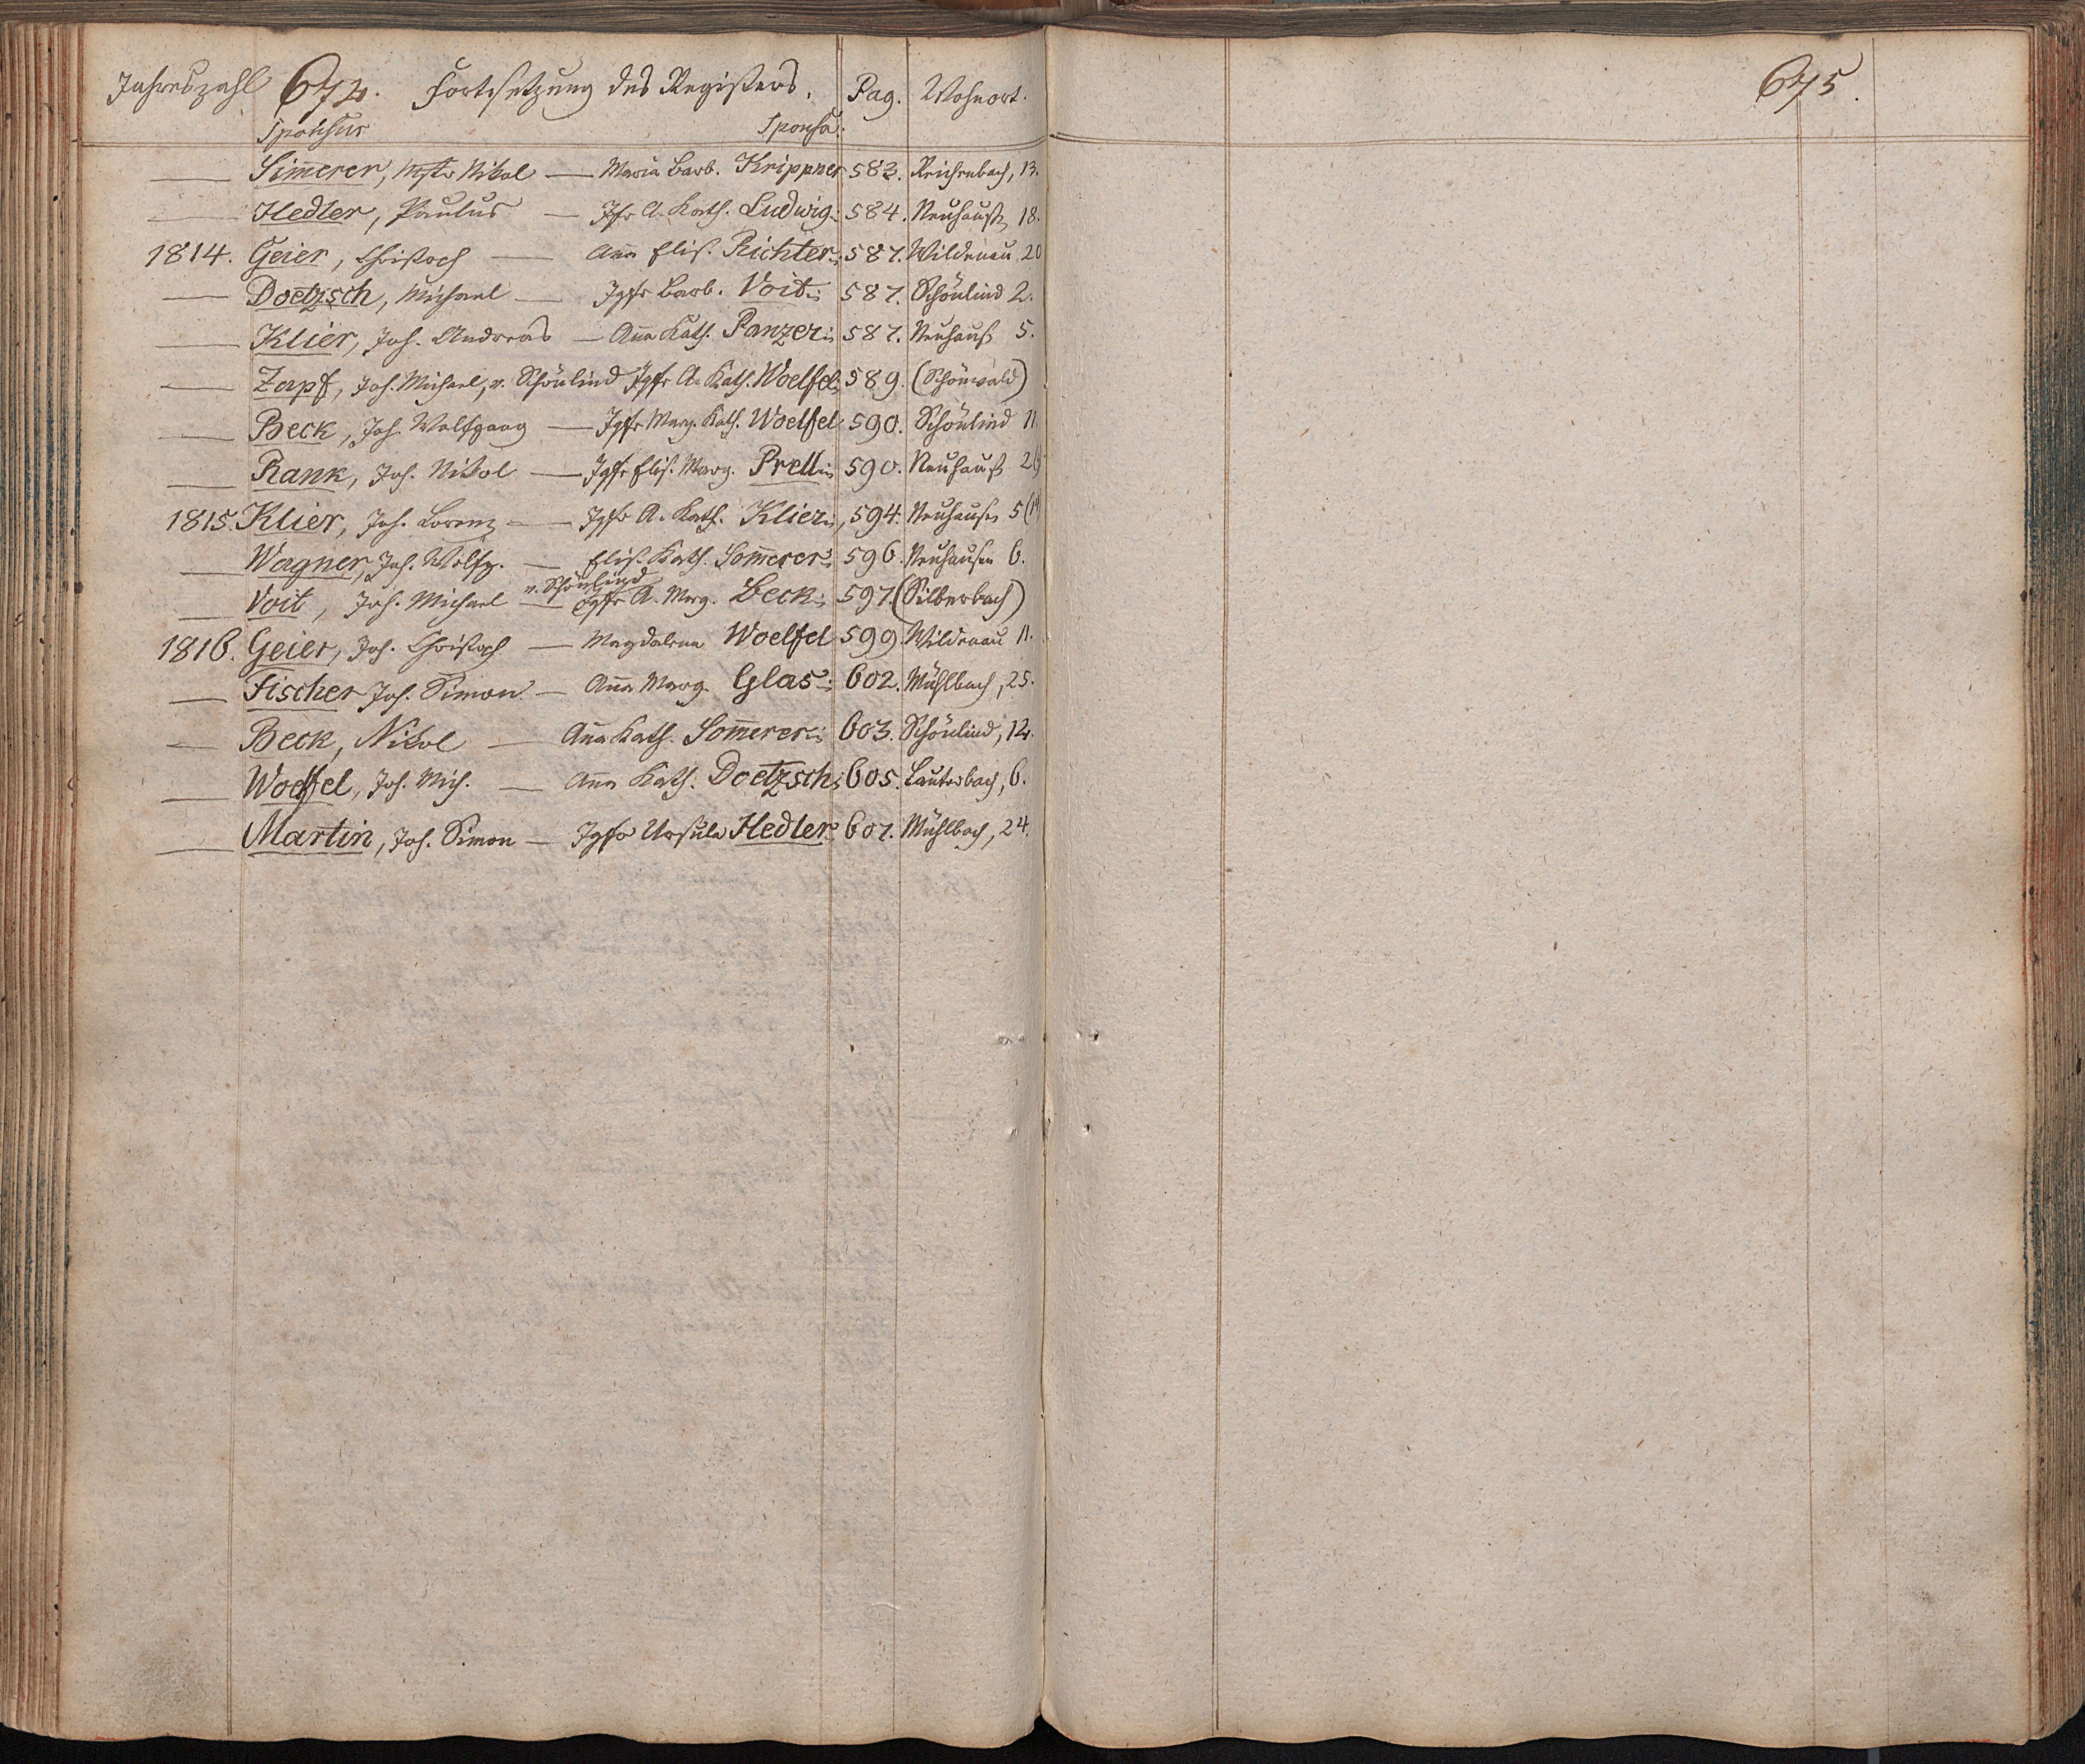 Jahreszahl 674. Fortsetzung des Registers. Pag. Wohnort.
Sponsus Sponsa.
— Simerer, Mstr Nikol — Maria Barb. Krippner 583. Reichenbach, 13.
— Hedler, Paulus — Jfr A. Kath. Ludwig. 584. Neuhauß, 18.
1814. Geier, Christoph — Aña Elis. Richter. 587. Wildenau 20
— Doetzsch, Michael — Jgfr Barb. Voit. 587. Schönlind 2.
— Klier, Joh. Andreas — Aña Kath. Panzer. 587. Neuhauß 5.
— Zapf, Joh. Michael, v. Schönlind Jgfr A. Kath. Woelfel 589. (Schönwald)
— Beck, Joh. Wolfgang — Jgfr Marg. Kath. Woelfel 590. Schönlind 11.
— Rank, Joh. Nikol — Jgfr Elis. Marg. Prell. 590. Neuhauß
1815. Klier, Joh. Lorenz — Jgfr A. Kath. Klier, 594. Neuhausen 5
— Wagner, Joh. Wolfg. — Elis. Kath. Som̃erer 596. Neuhausen 6.
— Voit, Joh. Michael v. Schönlind — Jgfr A. Marg. Beck. 597. (Silberbach)
1816. Geier, Joh. Christoph — Magdalena Woelfel 599. Wildenau 11.
— Fischer Joh. Simon — Aña Marg. Glas. 602. Mühlbach, 25.
— Beck, Nikol — Aña Kath. Som̃erer. 603. Schönlind, 12.
— Woelfel, Joh. Mich. — Aña Kath. Doetzsch 605. Lauterbach, 6.
— Martin, Joh. Simon — Jgfr Ursula Hedler 607. Mühlbach, 24.
675.